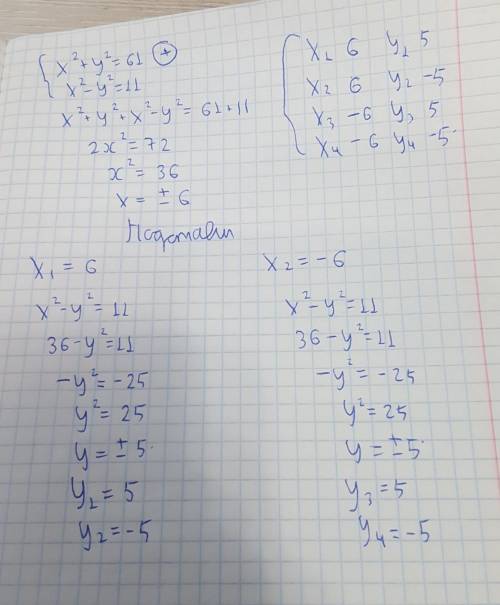 { x²+y²=61 (+)
x²-y²=11
x²+y²+x²-y²=61+11
2x²=72
x²=36
x=±6
{ x₁ 6 y₁ 5
x₂ 6 y₂ -5
x₃ -6 y₃ 5
x₄ -6 y₄ -5
Подставим
x₁=6
x²-y²=11
36-y²=11
-y²=-25
y²=25
y=±5
y₁=5
y₂=-5
x₂=-6
x²-y²=11
36-y²=11
-y²=-25
y²=25
y=±5
y₃=5
y₄=-5